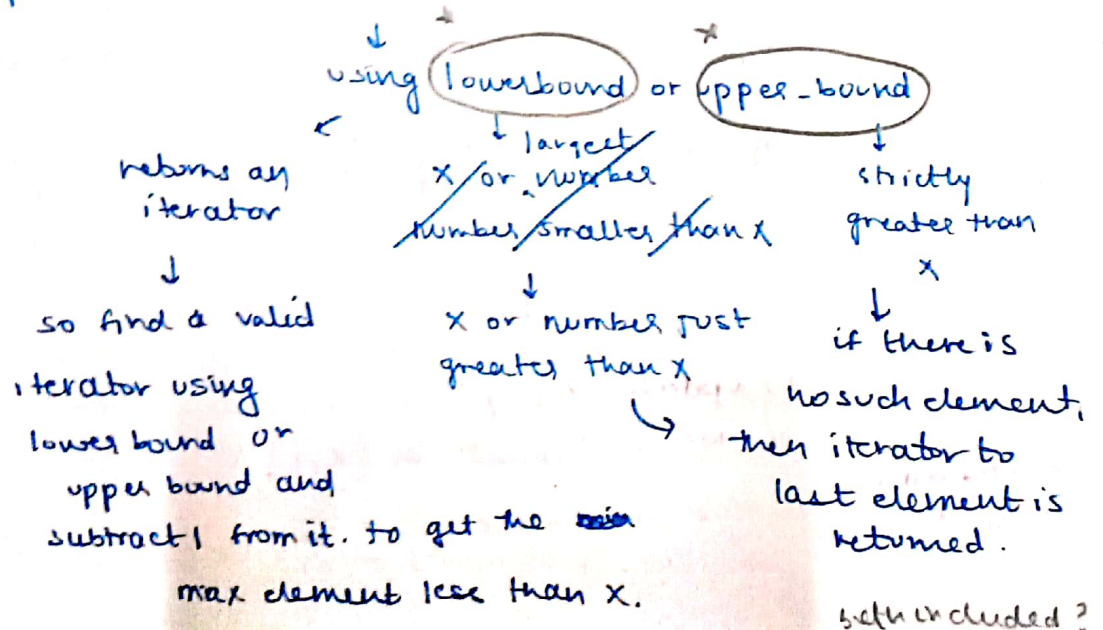 using lowerbound or upper_bound
returns an
iterator
so find a valid
iterator using
lower bound or
upper bound and
subtract 1 from it. to get the
max element less than x.
largest
x or number
number smaller than x
x or number just
greater than x
strictly
greater than
x
if there is
no such element,
then iterator to
last element is
returned.
included?